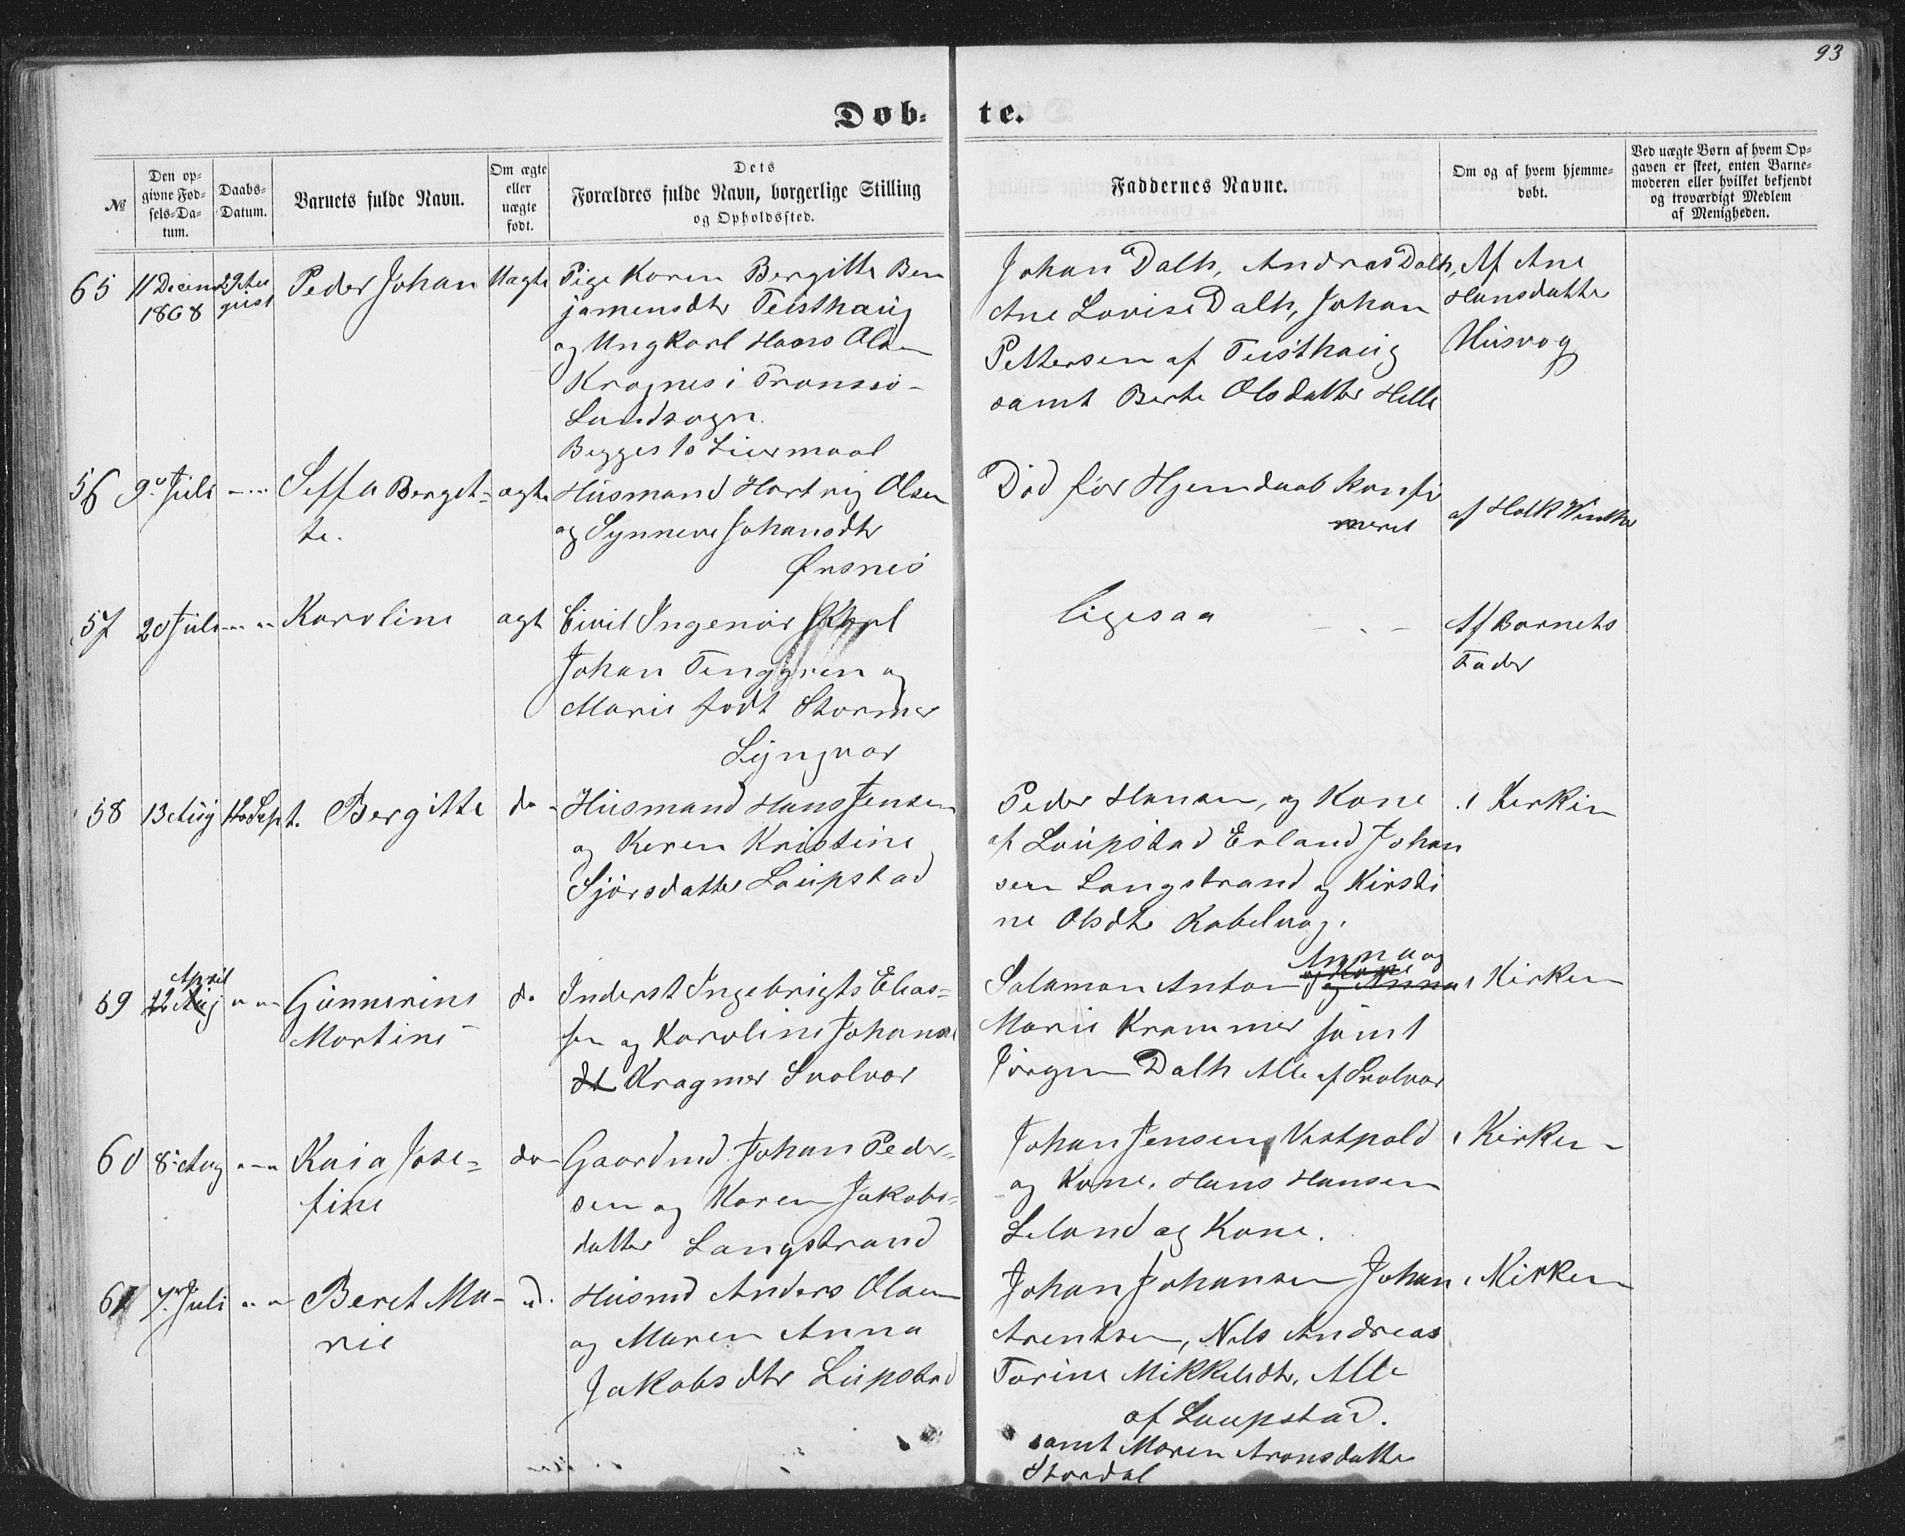 93
Døb-
te.
№
Den op-
givne Fød-
sels-Da-
tum.
Daabs-
Datum.
Barnets fulde Navn.
Om ægte
eller
uægte
født.
Dets
Forældres fulde Navn, borgerlige Stilling
og Opholdssted.
Faddernes Navne.
Om og af hvem hjemme-
døbt.
Ved uægte Børn af hvem Op-
gaven er skeet, enten Barne-
moderen eller hvilket bekjendt
og troværdigt Medlem
af Menigheden.
65
11 Decem
1868
29 Au
gust
Peder Johan
Uægte
Pige Karen Bergitte Ben
jamensdtr Teisthaug
og Ungkarl Hans Olsen
Kragnes i Tromsö-
Landsogn.
Begges 1ste Leiermaal
Johan Dalh, Andreas Dalh,
Ane Lovise Dalh, Johan
Pettersen af Teisthaug
samt Berte Olsdatter Helle
Af Ane
Hansdatter
Husvog
56
9de Juli
Seffa Berget-
te.
ægte
Husmand Hartvig Olsen
og Synneve Johansdtr
Ørsnes
Død før Hjemdaab konfir
meret
af Holk Winther
57
20 Juli
Karoline
ægt
Civil Ingeniør Karl
Johan Tenggren og
Marie født Stormer
Lyngvær
ligesaa
Af Barnets
Fader
58
13 Aug
12 Sept.
Bergitte
do
Husmand Hans Jensen
og Karen Kristine
Sjørsdatter Laupstad
Peder Hansen, og Kone
af Laupstad Erland Johan
sen Langstrand og Kirsti
ne Olsdtr Kabelvog.
i Kirken
59
April
22 Aug
Gunnerine
Martine
do
Inderst Ingebrigts Elias-
sen og Karoline Johanne
dt Kragmer Svolvær
Anna og
og Kone
Salamon Anton og Anna
Marie Krammer samt
Jørgen Dalh Alle af Svolvær
i Kirken
60
8 Aug
Kaia Jose-
fine
do
Gaardmd Johan Peder-
sen og Karen Jakobs-
datter Langstrand
Johan Jensen Vestpold
og Kone. Hans Hansen
Leland og Kone.
i Kirken
61
7de Juli
Beret Ma-
rie
d.
Husmd Anders Olsen
og Maren Anna
Jakobsdtr Lupstad
Johan Johansen Johan
Arentsen, Nils Andreas
Torine Mikkelsdtr. Alle
af Laupstad.
samt Maren Aronsdatter
Stordal
i Kirken